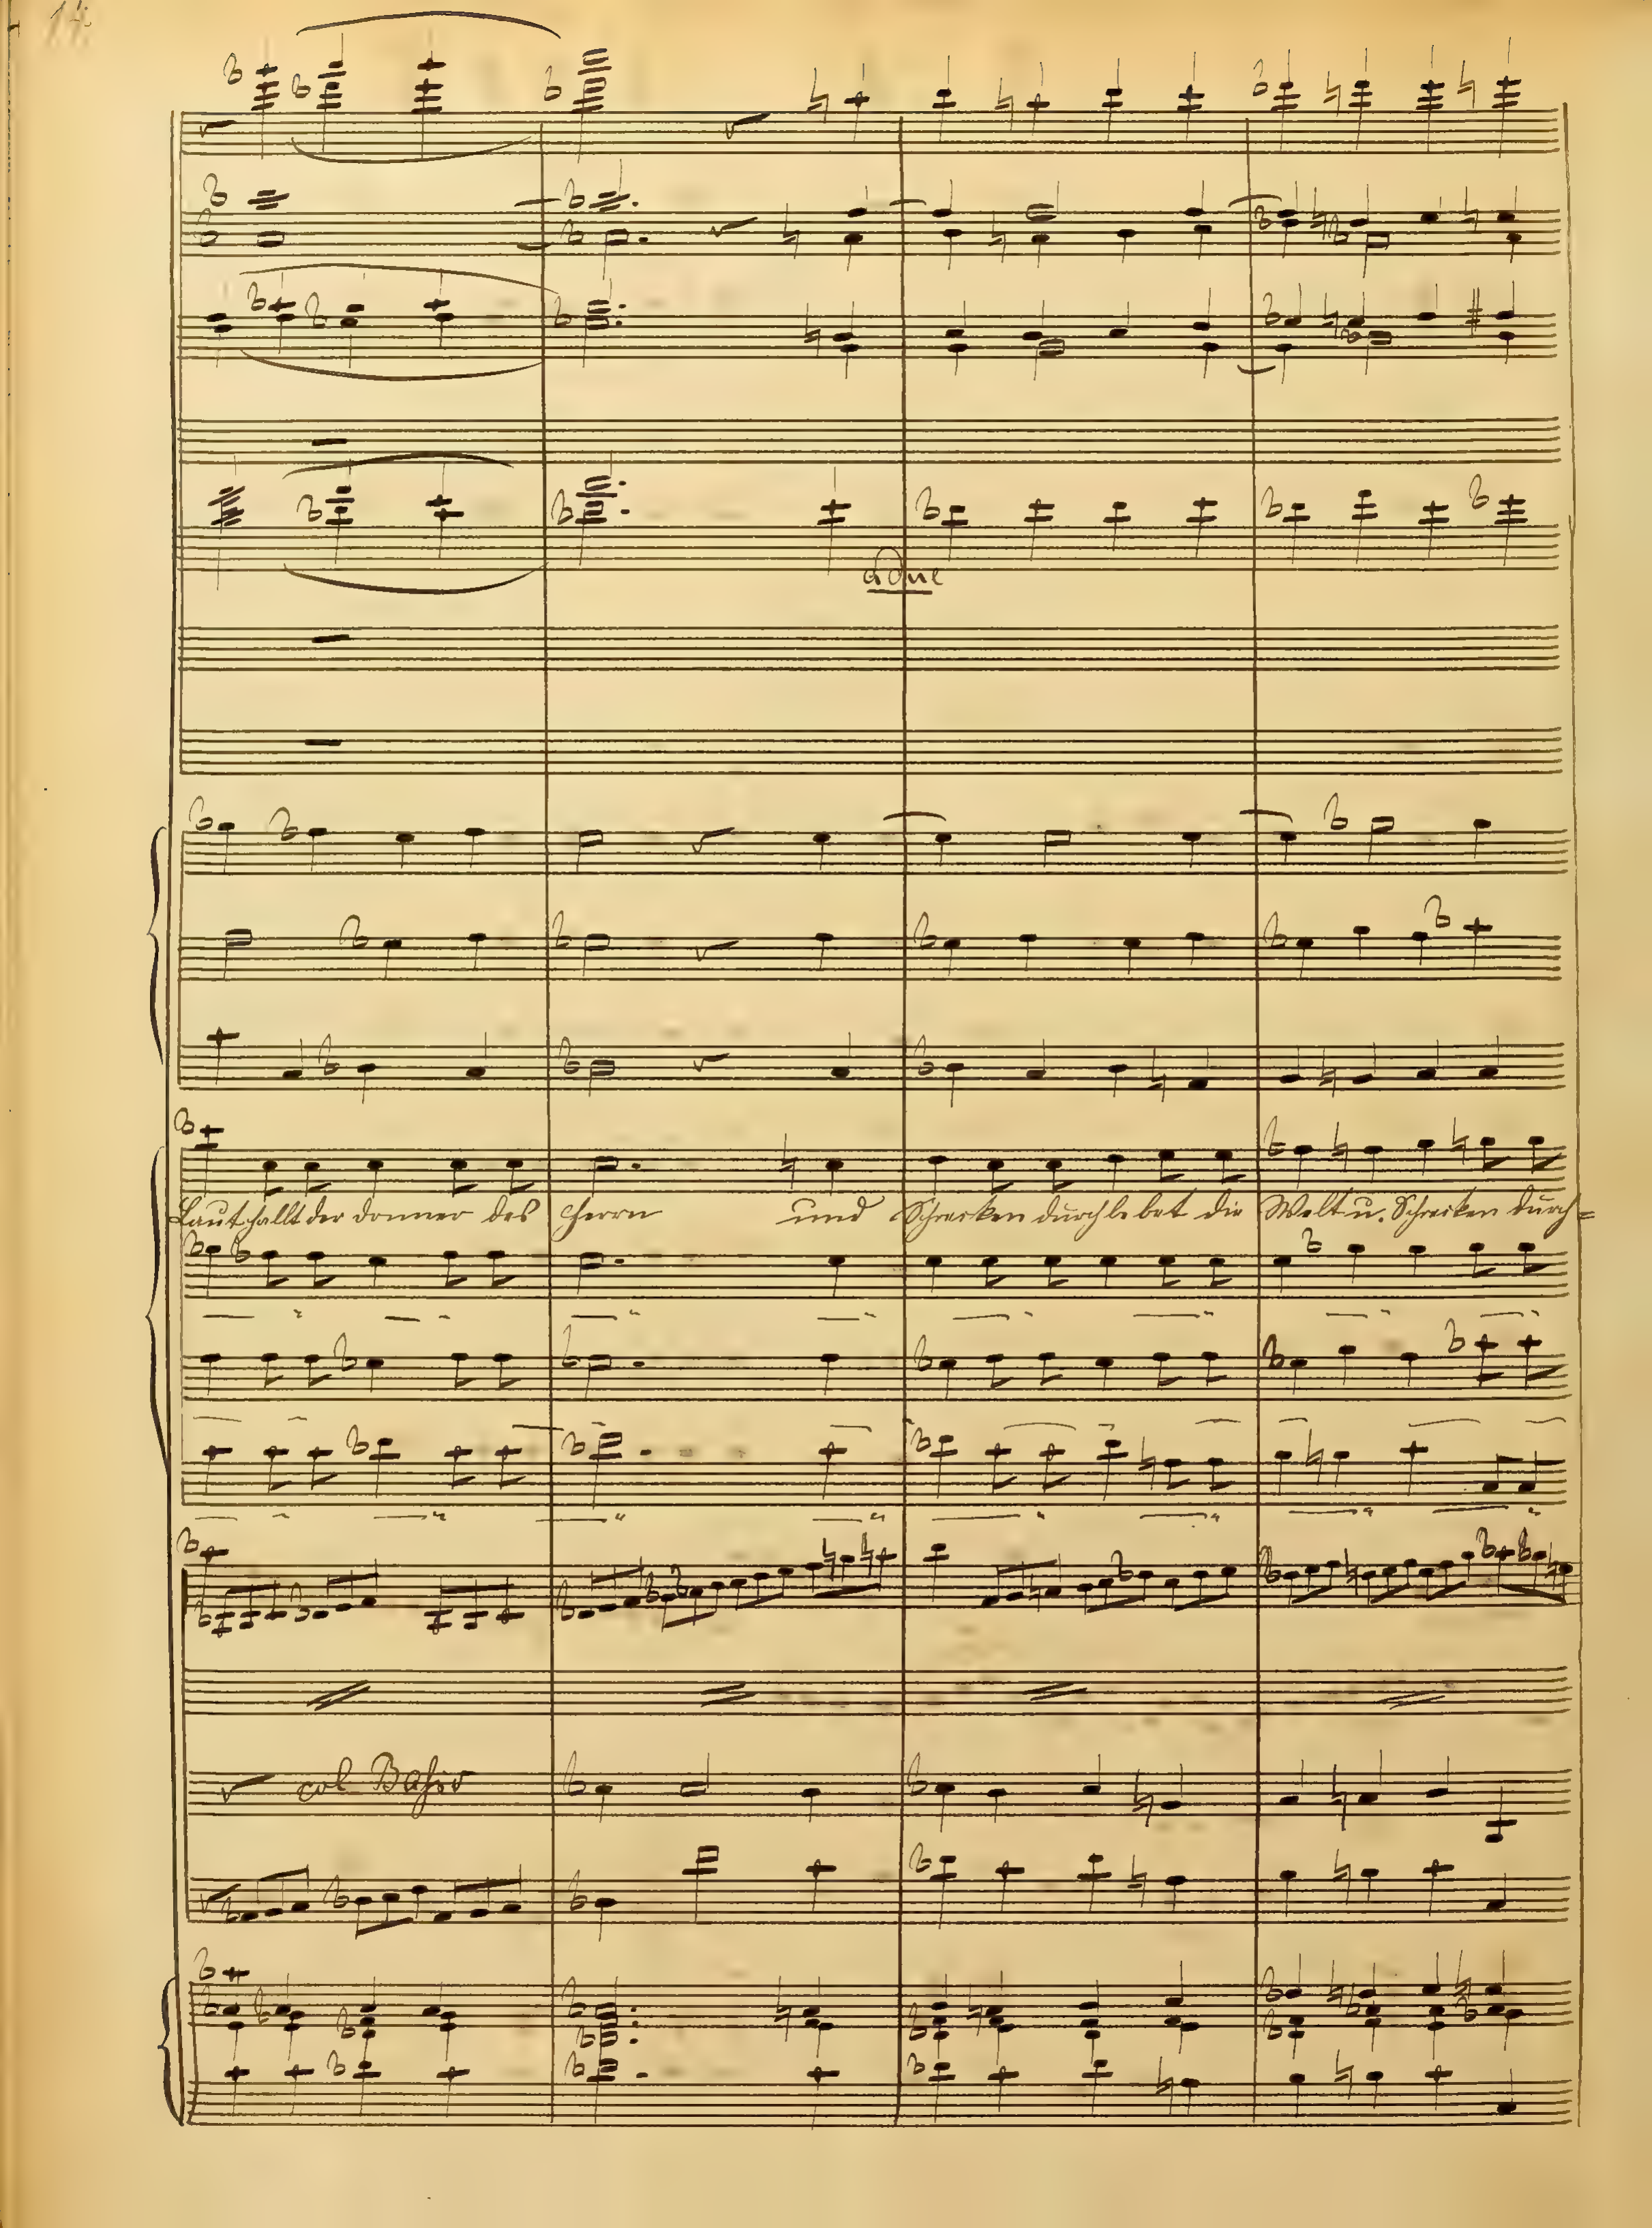 14.
a due
Laut hallt der donner des Herrn und Schrecken durchbebet die Welt u. Schrecken durch=
col Basso